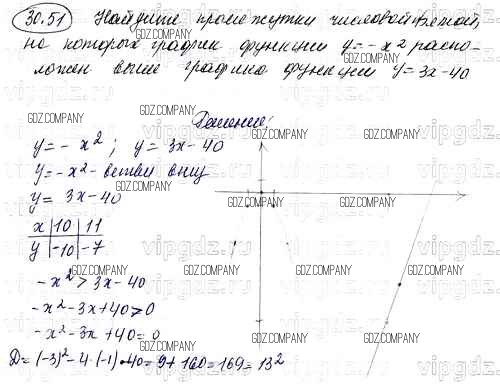 30.51 Найдите промежутки числовой прямой,
на которых график функции y = -x² распо-
ложен выше графика функции y = 3x-40
Решение:
y = -x²; y = 3x-40
y = -x² - ветви вниз
y = 3x-40
x | 10 | 11
y | -10 | -7
-x² > 3x-40
-x² - 3x + 40 > 0
-x² - 3x + 40 = 0
D = (-3)² - 4·(-1)·40 = 9 + 160 = 169 = 13²
GDZ.COMPANY
vipgdz.ru